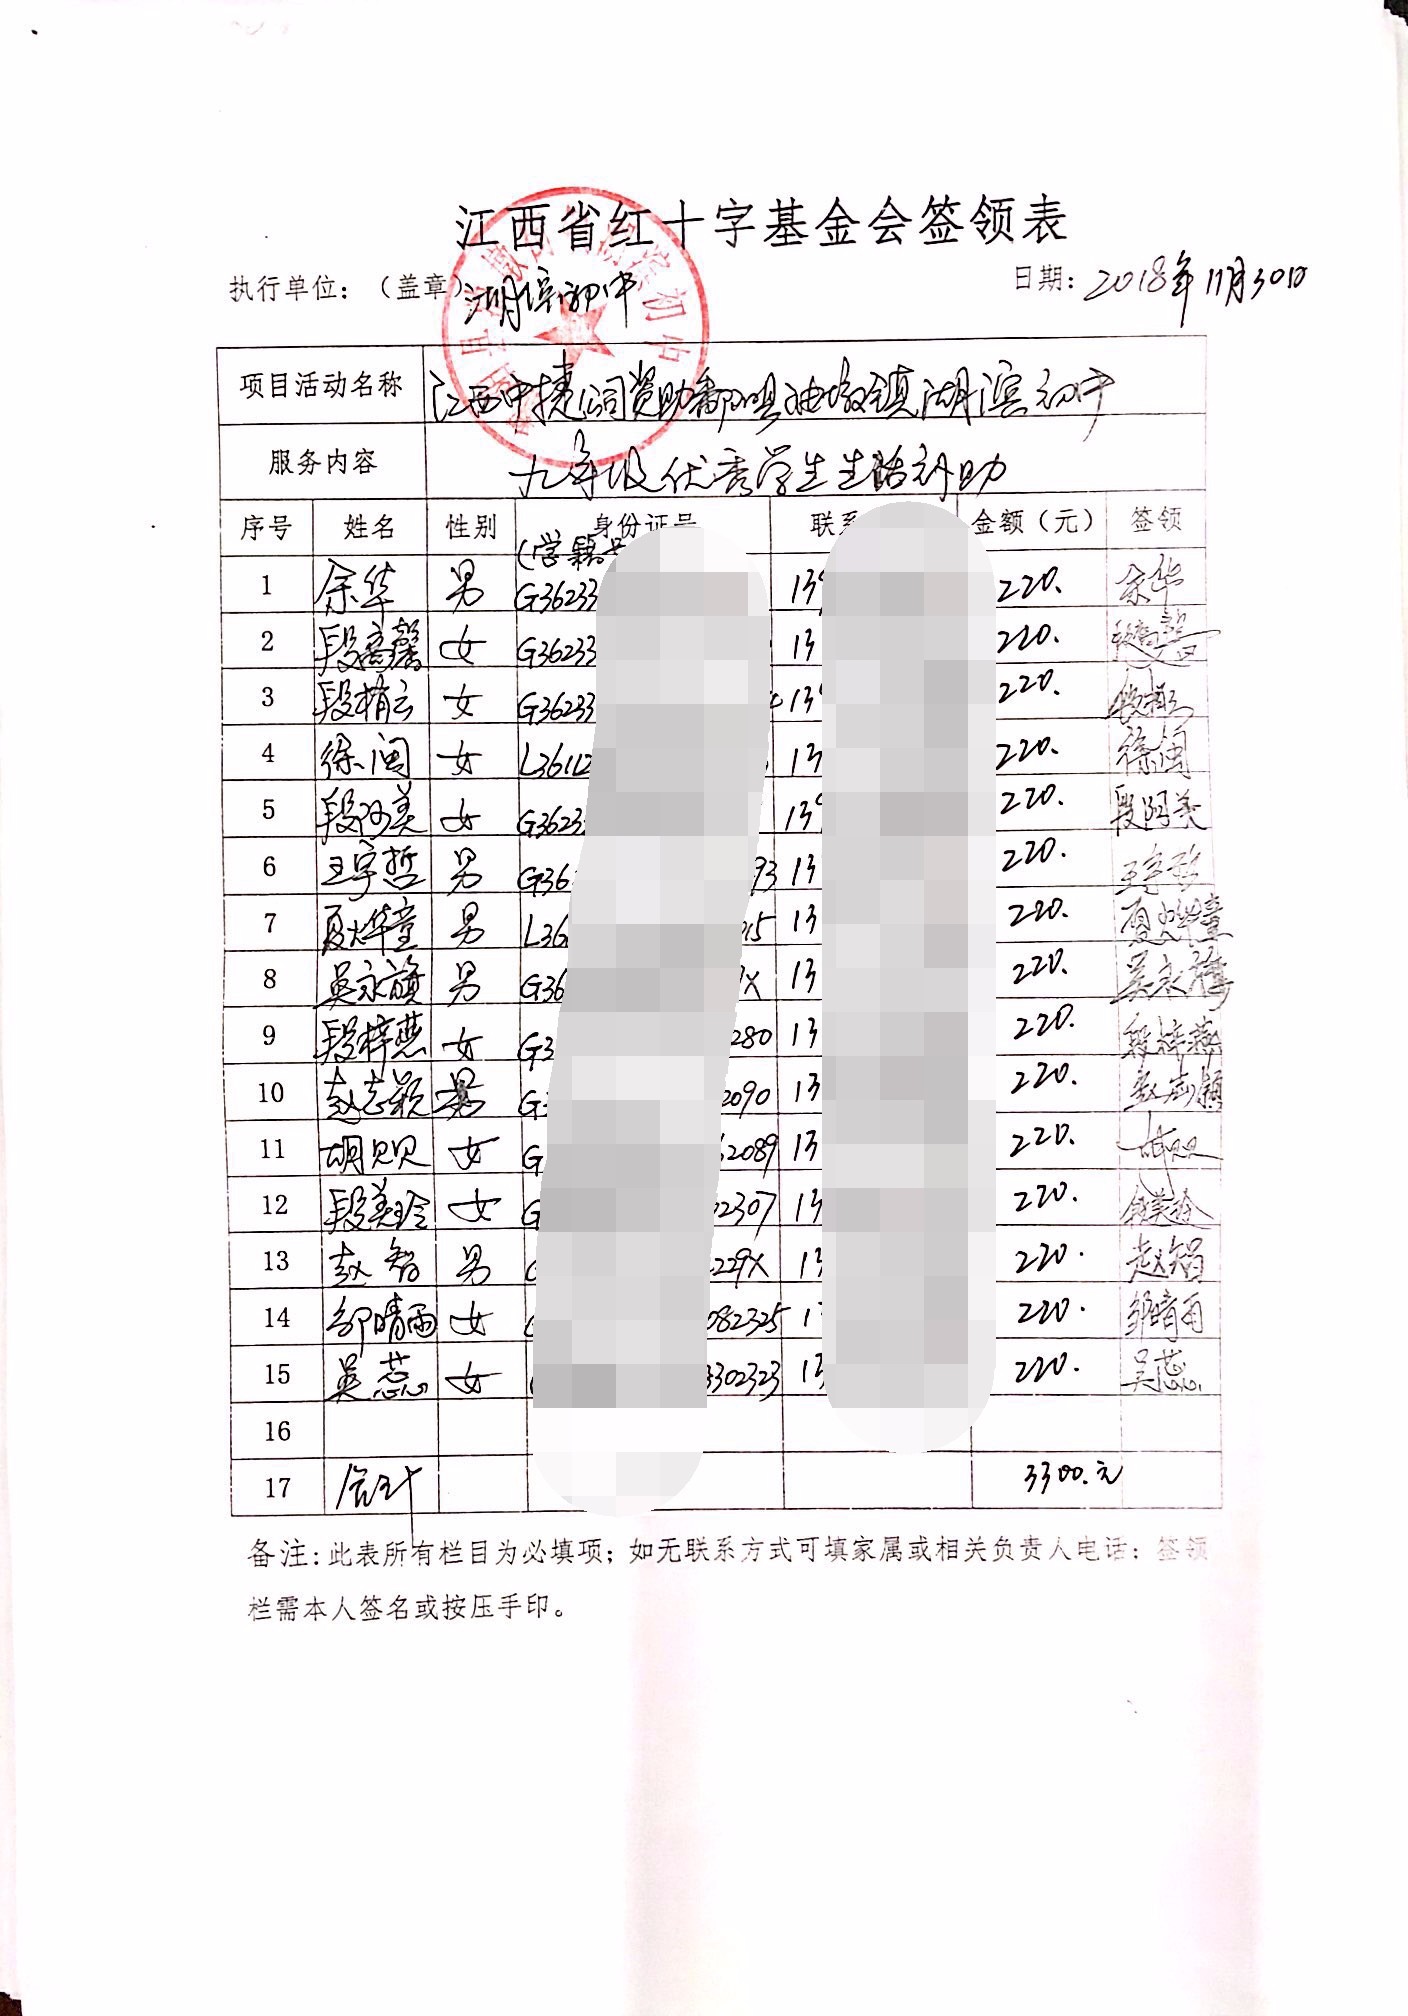 江西省红十字基金会签领表
执行单位：（盖章）湖滨初中 日期：2018年11月30日
项目活动名称 江西中捷公司资助鄱阳县油墩镇湖滨初中
服务内容 九年级优秀学生生活补助
序号 姓名 性别 身份证号 联系 金额（元） 签领
（学籍号
1 余华 男 G36233 139 220. 余华
2 段 馨 女 G36233 13 220.
3 段 云 女 G36233 139 220.
4 徐闽 女 L36112 13 220. 徐闽
5 段阿美 女 G3623 139 220. 段阿美
6 王宇哲 男 G36 93 13 220. 王宇哲
7 夏烨童 男 L36 15 13 220. 夏烨童
8 吴永旗 男 G36 X 13 220. 吴永旗
9 段梓燕 女 G3 280 13 220. 段梓燕
10 赵志颖 男 G3 2090 13 220. 赵志颖
11 胡贝贝 女 G 2089 13 220. 胡贝贝
12 段美玲 女 G 02307 13 220. 段美玲
13 赵智 男 229X 13 220. 赵智
14 邹晴雨 女 082325 1 220. 邹晴雨
15 吴蕊 女 3302323 13 220. 吴蕊
16
17 合计 3300.元
备注：此表所有栏目为必填项；如无联系方式可填家属或相关负责人电话；签领
栏需本人签名或按压手印。